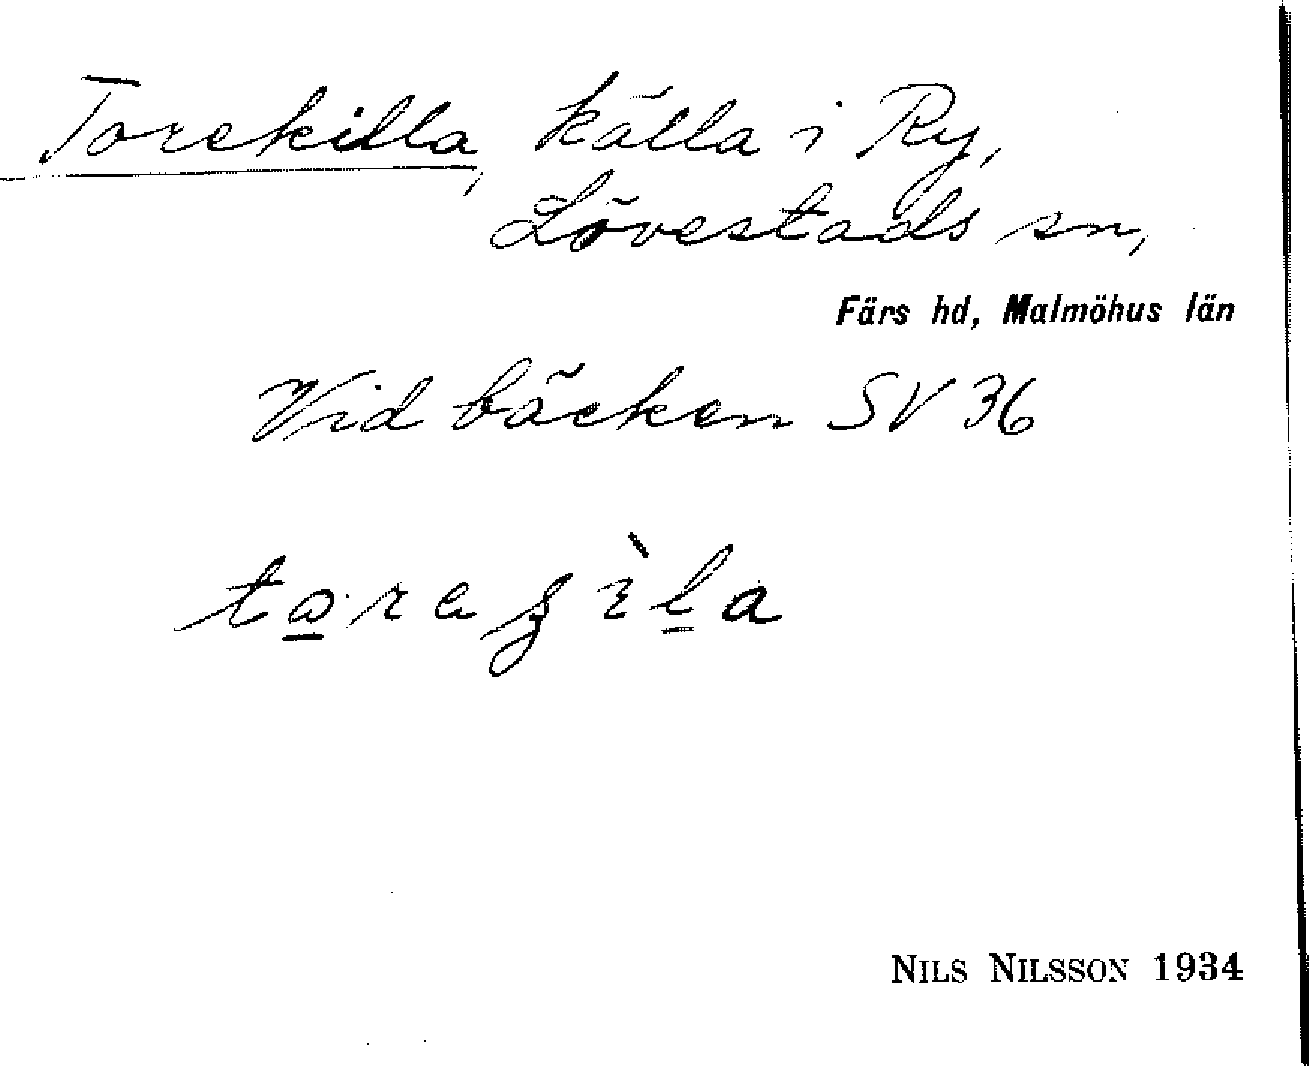 Torekilla, källa i Ry,
Lövestads sn,
Färs hd, Malmöhus län
Vid bäcken SV 36
NILS NILSSON 1934